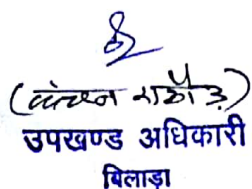 (कंचन राठौड़)
उपखण्ड अधिकारी
बिलाड़ा